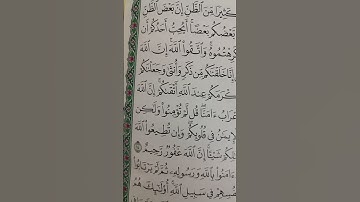 كَثِيرًا مِّنَ ٱلظَّنِّ إِنَّ بَعْضَ ٱلظَّنِّ
بَّعْضُكُم بَعْضًا أَيُحِبُّ أَحَدُكُمْ أَن
كَرِهْتُمُوهُ وَٱتَّقُوا۟ ٱللَّهَ إِنَّ ٱللَّهَ
إِنَّا خَلَقْنَٰكُم مِّن ذَكَرٍ وَأُنثَىٰ وَجَعَلْنَٰكُمْ
كْرَمَكُمْ عِندَ ٱللَّهِ أَتْقَىٰكُمْ إِنَّ ٱللَّهَ
عْرَابُ ءَامَنَّا قُل لَّمْ تُؤْمِنُوا۟ وَلَٰكِن
لْإِيمَٰنُ فِى قُلُوبِكُمْ وَإِن تُطِيعُوا۟ ٱللَّهَ
لِكُمْ شَيْـًٔا إِنَّ ٱللَّهَ غَفُورٌ رَّحِيمٌ
ءَامَنُوا۟ بِٱللَّهِ وَرَسُولِهِۦ ثُمَّ لَمْ يَرْتَابُوا۟
نفُسِهِمْ فِى سَبِيلِ ٱللَّهِ أُو۟لَٰٓئِكَ هُمُ